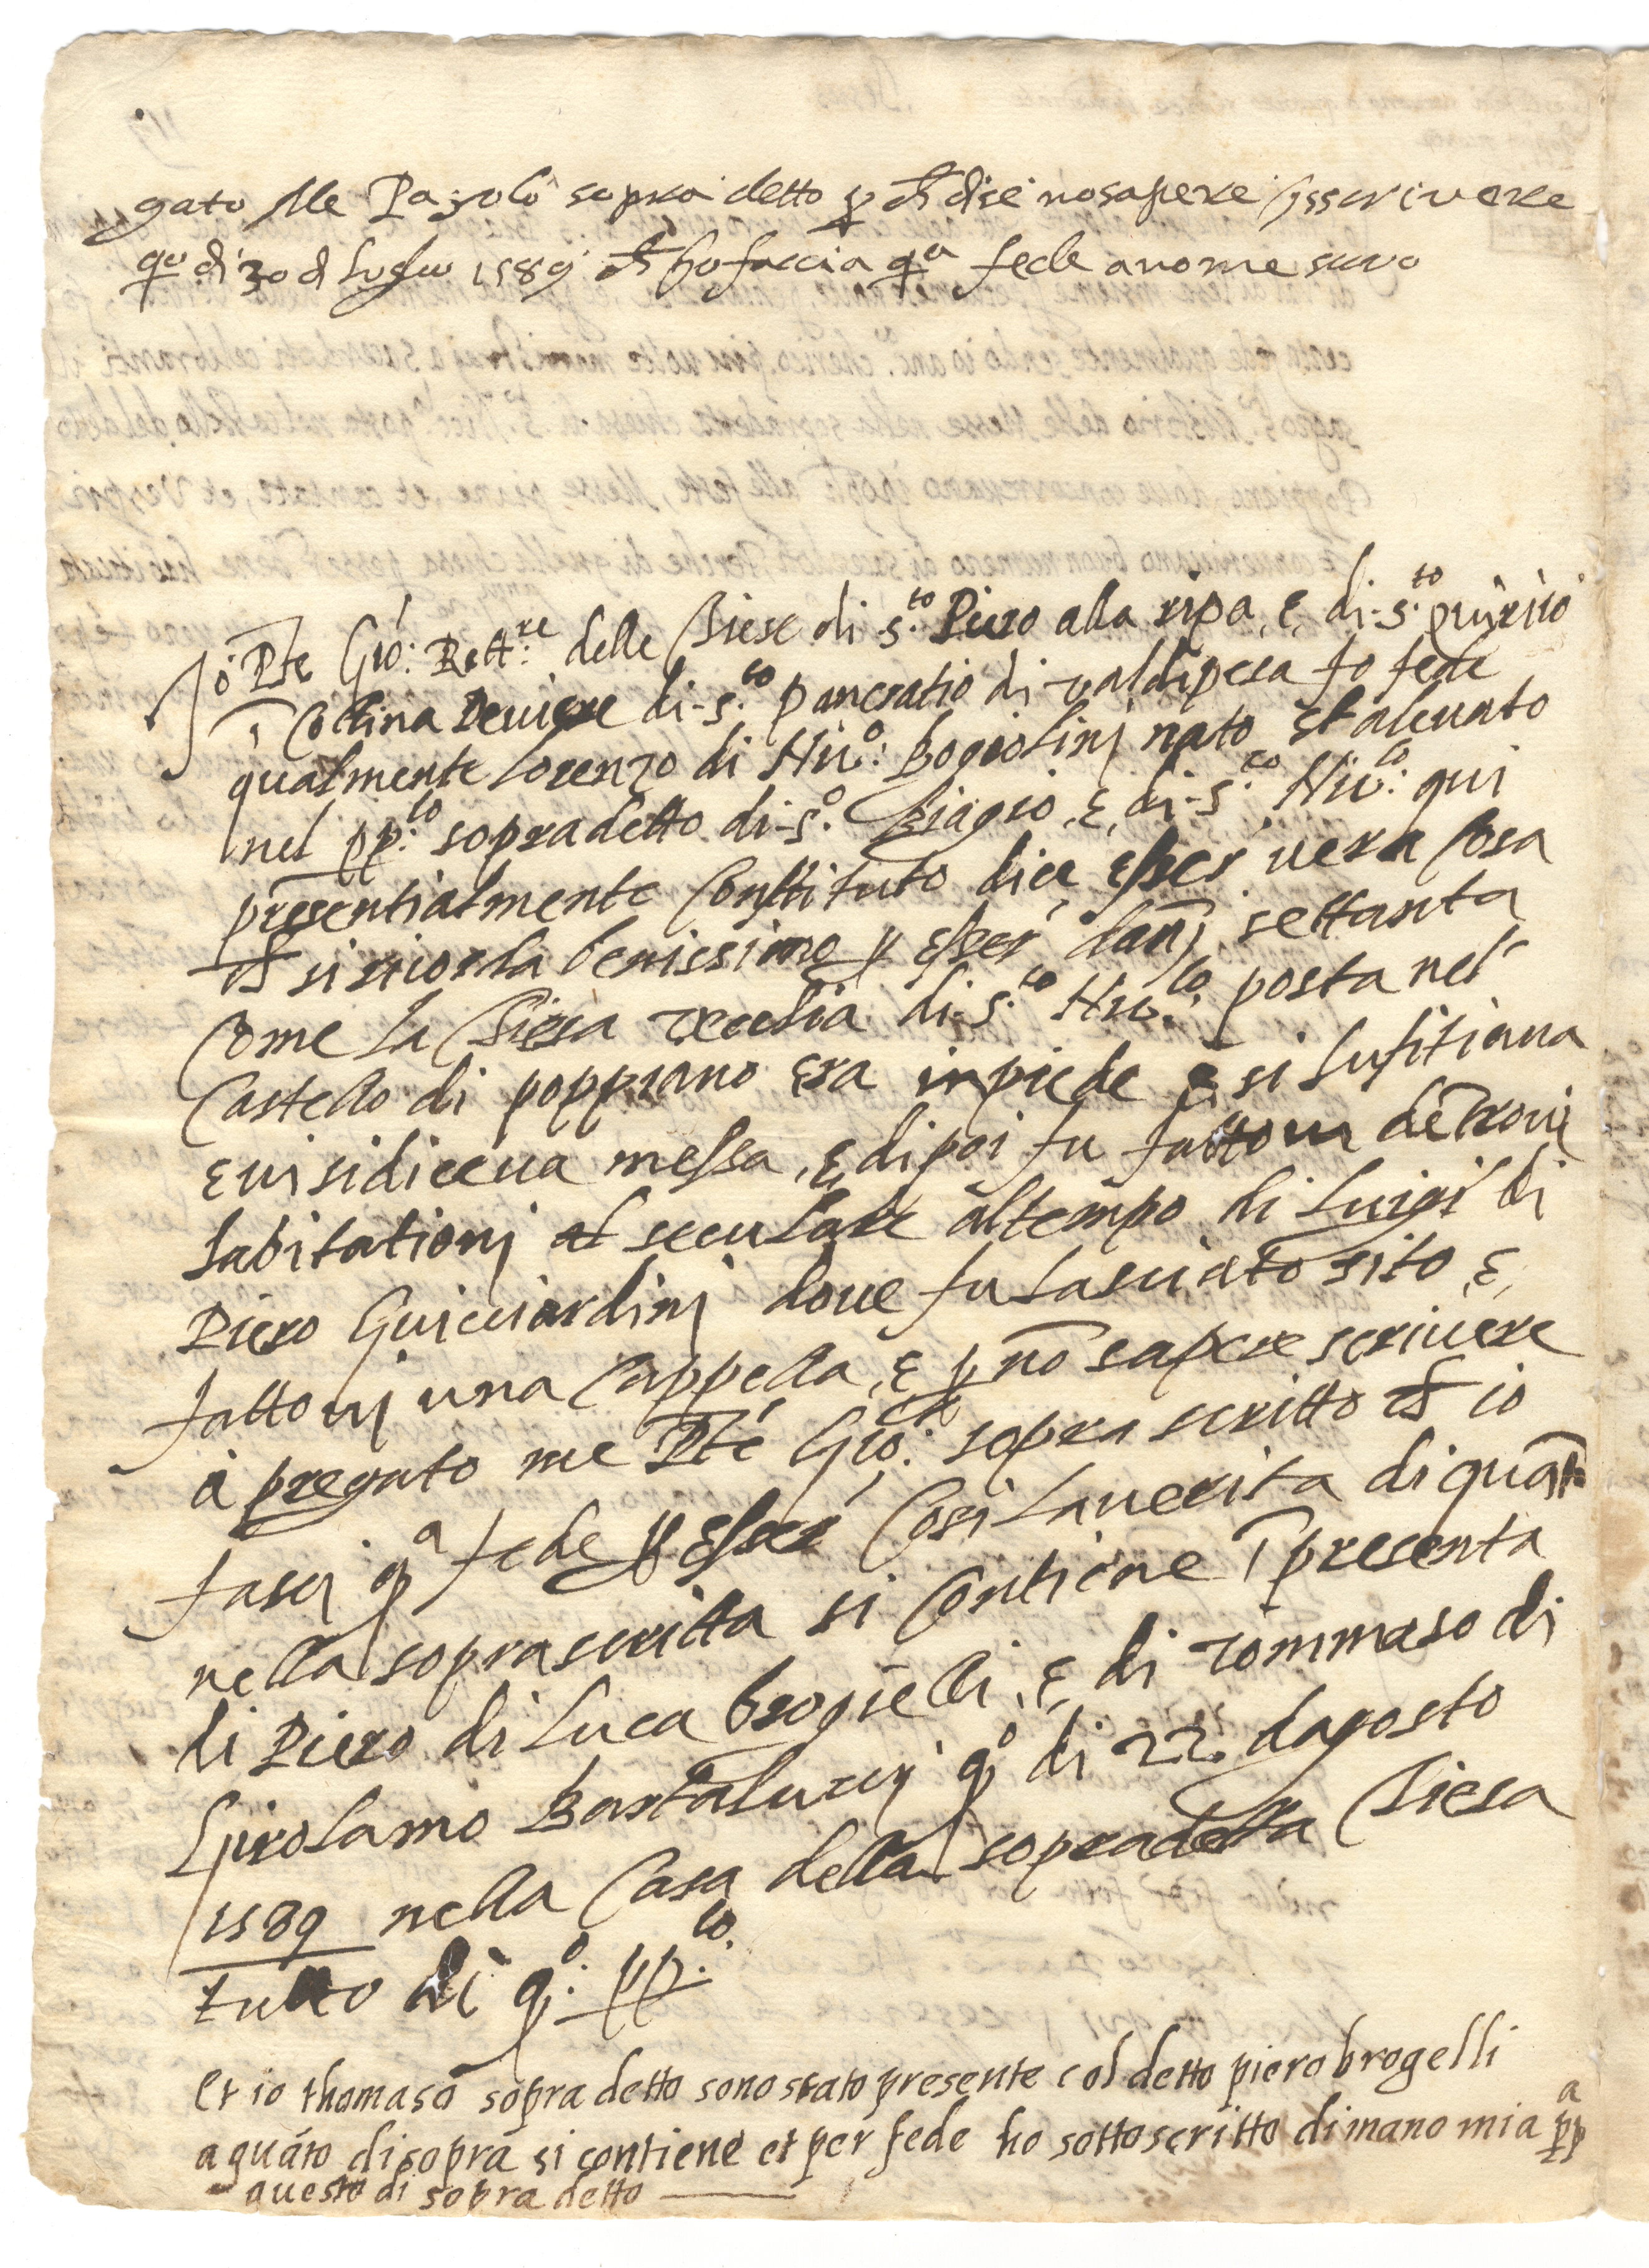 gato Me Pagolo sopra detto p ch dise no sapere isscrivere
qo di 30 d Luglio 1589 ch ho faccia qa fede a nome suuo
Io Pte Gio: Rett:re delle Chiese di s.to Piero alla ripa, e, di s.to quirico
ī Collina Peviere di s.to pancratio di valdipesa fo fede
qualmente Lorenzo di Nic.o: bogiolinj nato et alevato
nel pp.lo sopradetto di s.o Biagio, e, di s.to Nic.lo: qui
presentialmente Constituto dice, esser vera Cosa
ch si ricorda benissimo p esser dannj settanta
Come la Chiesa vecchia di s.to Nic.lo: posta nel
Castello di poppiano era inpiede e si hufitiava
e vi si diceva messa, e, dipoi fu fattovi de Trovi
habitationj al seculare al tempo di Luigi di
Piero Guicciardinj dove fu lasciato sito, e,
fattovj una Cappella, e p nō sapere scrivere
à pregato me Pte Gio: sopra scritto ch io
facci qa fede p esser Cosi la verita di quāto
nella soprascritta si Contiene ī presenta
di Piero di Luca brogielli, e, di Tommaso di
Girolamo Bartaluccj qo di 22. dagosto
1589 nella Casa della sopradetta Chiesa
tutto di qo: pp.lo
Et io thomaso sopra detto sono stato presente col detto piero brogelli
a quáto disopra si contiene et per fede ho sottoscritto di mano mia ppa
questo di sopra detto